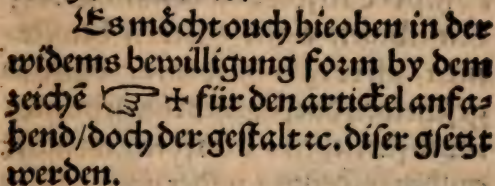 Es moͤcht ouch hieoben in der
widems bewilligung form by dem
zeichē ☞ + für den artickel anfa⸗
hend/doch der gestalt ꝛc. diser gsetzt
werden.